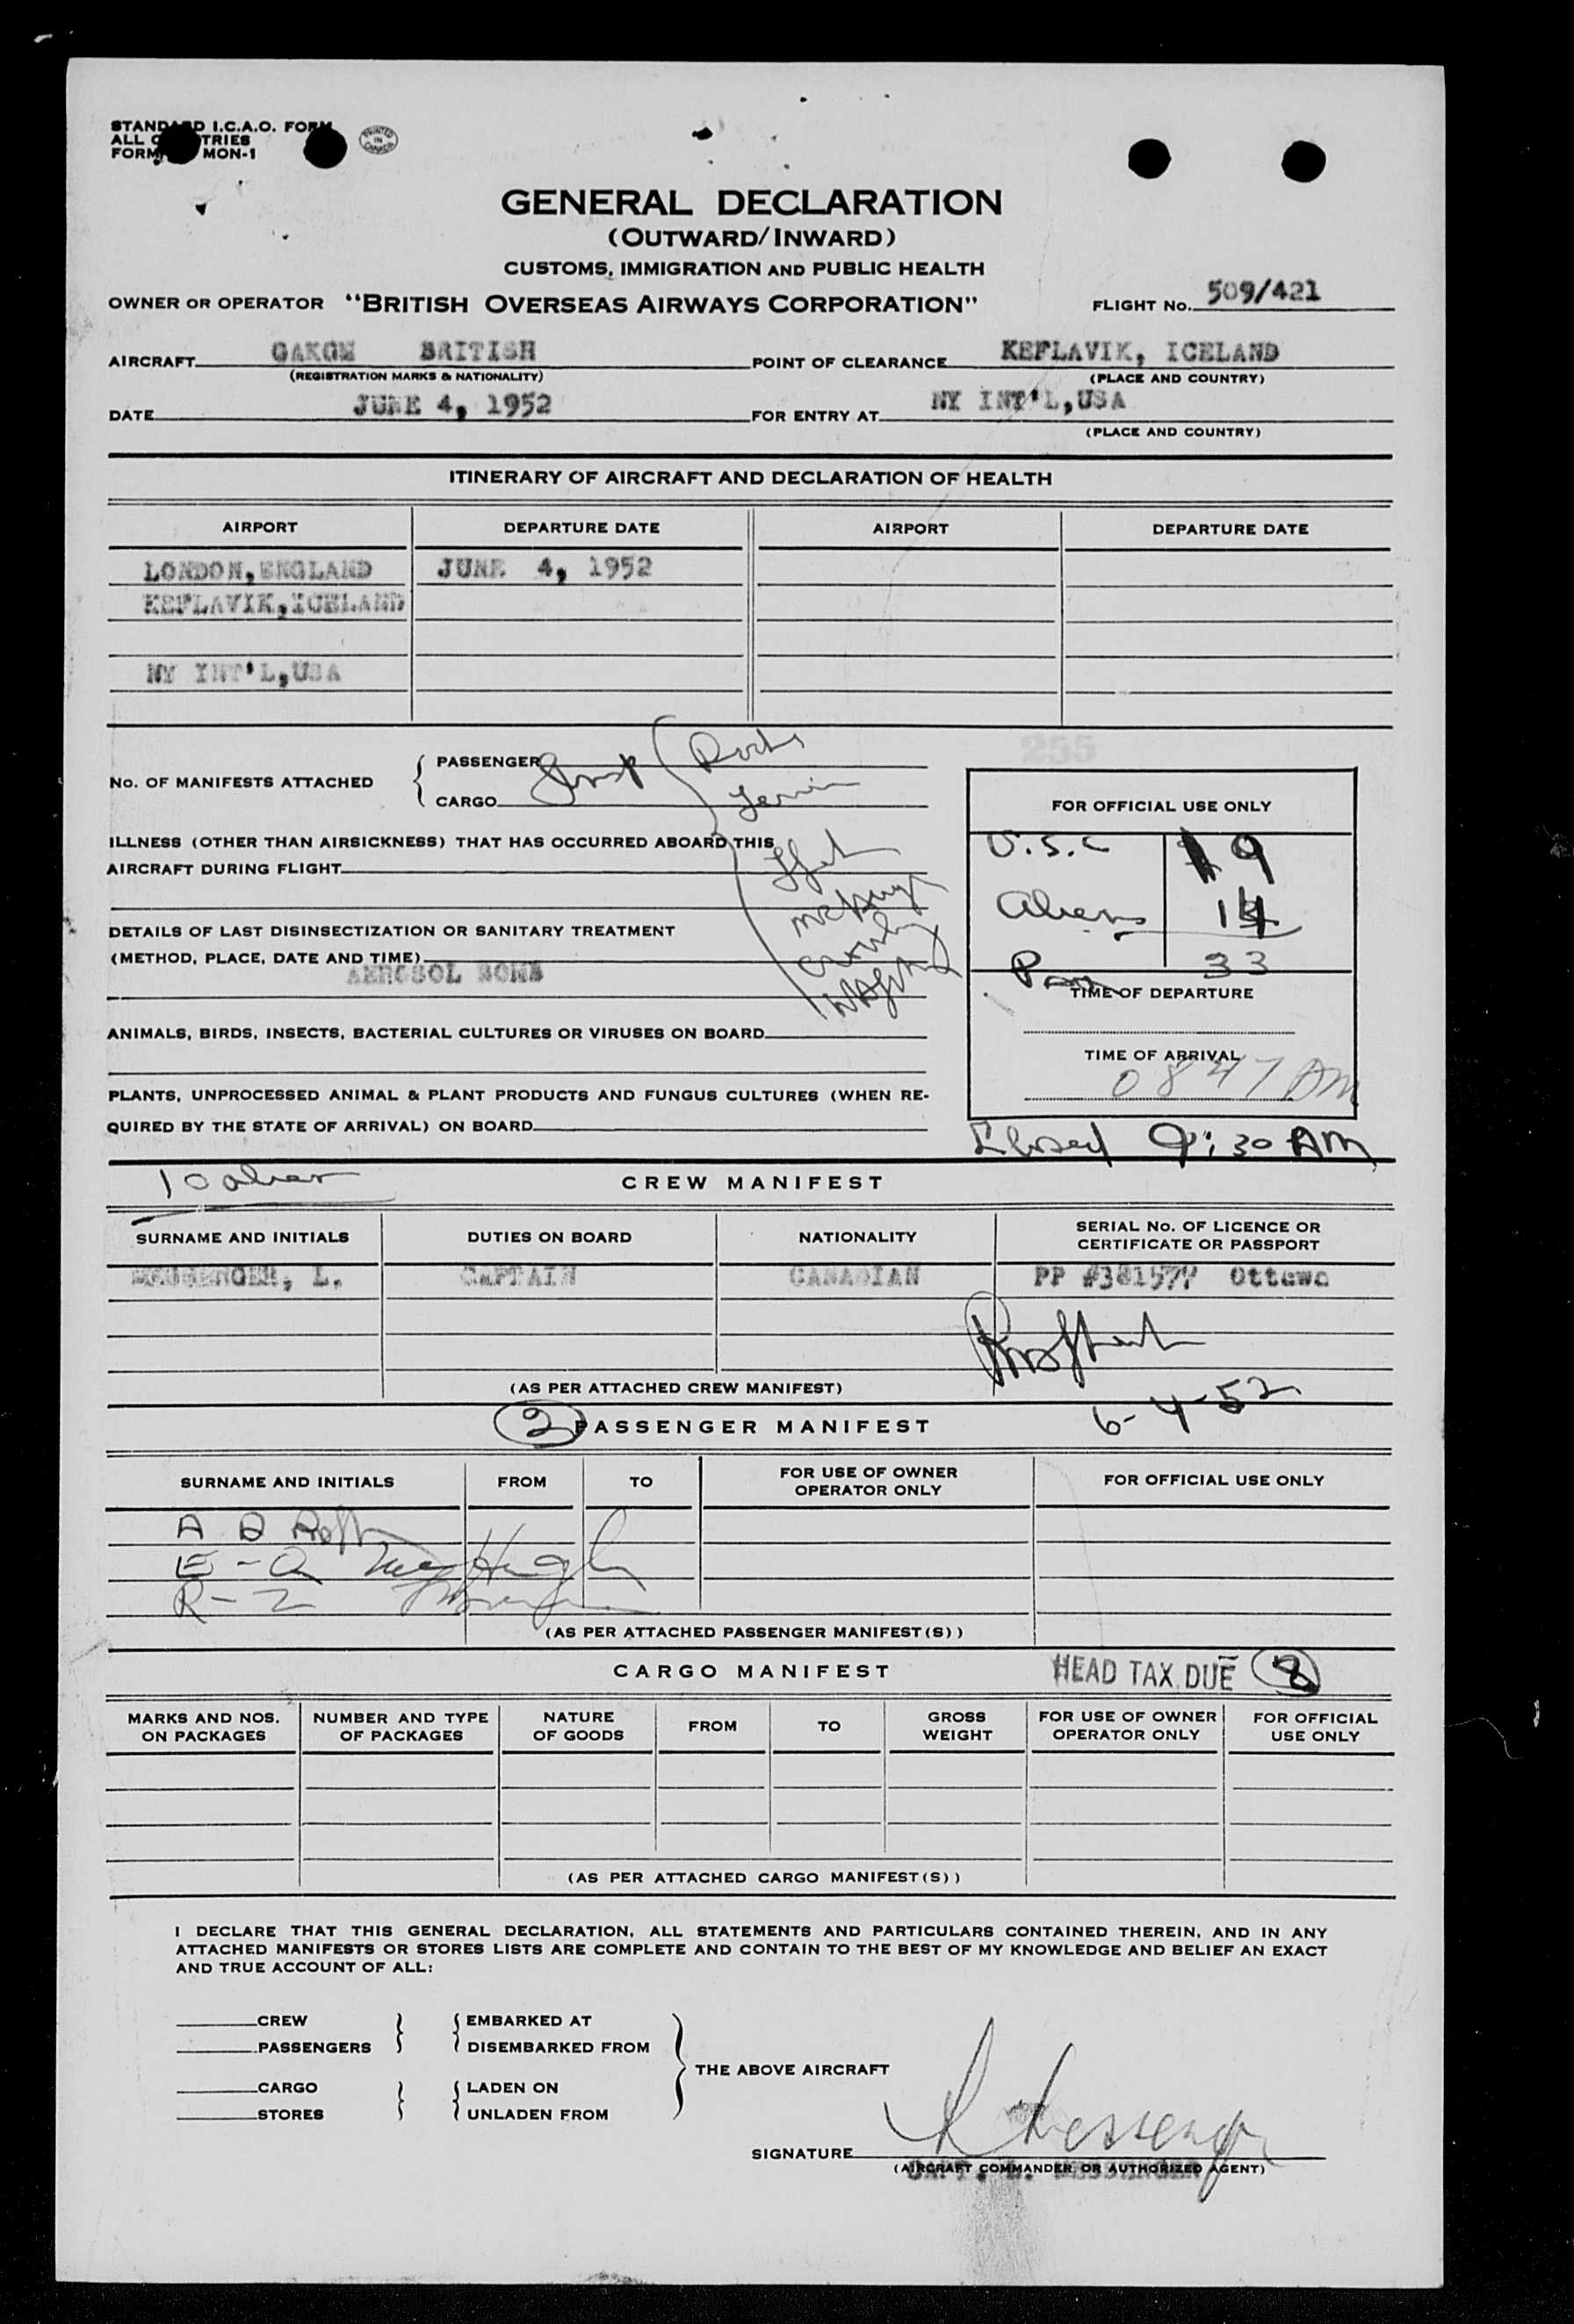 STANDARD I.C.A.O. FORM
ALL COUNTRIES
FORM MON-1
PRINTED IN CANADA
GENERAL DECLARATION
(OUTWARD/INWARD)
CUSTOMS, IMMIGRATION AND PUBLIC HEALTH
OWNER OR OPERATOR "BRITISH OVERSEAS AIRWAYS CORPORATION" FLIGHT No. 509/421
AIRCRAFT GAKGM BRITISH POINT OF CLEARANCE KEFLAVIK, ICELAND
(REGISTRATION MARKS & NATIONALITY) (PLACE AND COUNTRY)
DATE JUNE 4, 1952 FOR ENTRY AT NY INT'L,USA
(PLACE AND COUNTRY)
ITINERARY OF AIRCRAFT AND DECLARATION OF HEALTH
AIRPORT DEPARTURE DATE AIRPORT DEPARTURE DATE
LONDON,ENGLAND JUNE 4, 1952
KEFLAVIK,ICELAND
NY INT'L,USA
255
No. OF MANIFESTS ATTACHED
PASSENGER
CARGO
FOR OFFICIAL USE ONLY
U.S.C 19
Aliens 14
33
ILLNESS (OTHER THAN AIRSICKNESS) THAT HAS OCCURRED ABOARD THIS
AIRCRAFT DURING FLIGHT
DETAILS OF LAST DISINSECTIZATION OR SANITARY TREATMENT
(METHOD, PLACE, DATE AND TIME)
AEROSOL BOMB
TIME OF DEPARTURE
ANIMALS, BIRDS, INSECTS, BACTERIAL CULTURES OR VIRUSES ON BOARD
TIME OF ARRIVAL
0847 AM
PLANTS, UNPROCESSED ANIMAL & PLANT PRODUCTS AND FUNGUS CULTURES (WHEN RE-
QUIRED BY THE STATE OF ARRIVAL) ON BOARD
Closed 9:30 AM
10 alien
CREW MANIFEST
SURNAME AND INITIALS DUTIES ON BOARD NATIONALITY SERIAL No. OF LICENCE OR
CERTIFICATE OR PASSPORT
MESSENGER, L. CAPTAIN CANADIAN PP #381577 Ottawa
(AS PER ATTACHED CREW MANIFEST)
6-4-52
2 PASSENGER MANIFEST
SURNAME AND INITIALS FROM TO FOR USE OF OWNER
OPERATOR ONLY FOR OFFICIAL USE ONLY
(AS PER ATTACHED PASSENGER MANIFEST(S))
CARGO MANIFEST HEAD TAX DUE 8
MARKS AND NOS.
ON PACKAGES NUMBER AND TYPE
OF PACKAGES NATURE
OF GOODS FROM TO GROSS
WEIGHT FOR USE OF OWNER
OPERATOR ONLY FOR OFFICIAL
USE ONLY
(AS PER ATTACHED CARGO MANIFEST(S))
I DECLARE THAT THIS GENERAL DECLARATION, ALL STATEMENTS AND PARTICULARS CONTAINED THEREIN, AND IN ANY
ATTACHED MANIFESTS OR STORES LISTS ARE COMPLETE AND CONTAIN TO THE BEST OF MY KNOWLEDGE AND BELIEF AN EXACT
AND TRUE ACCOUNT OF ALL:
CREW EMBARKED AT
PASSENGERS DISEMBARKED FROM
THE ABOVE AIRCRAFT
CARGO LADEN ON
STORES UNLADEN FROM
SIGNATURE L Messenger
(AIRCRAFT COMMANDER OR AUTHORIZED AGENT)
CAPT. L. MESSENGER